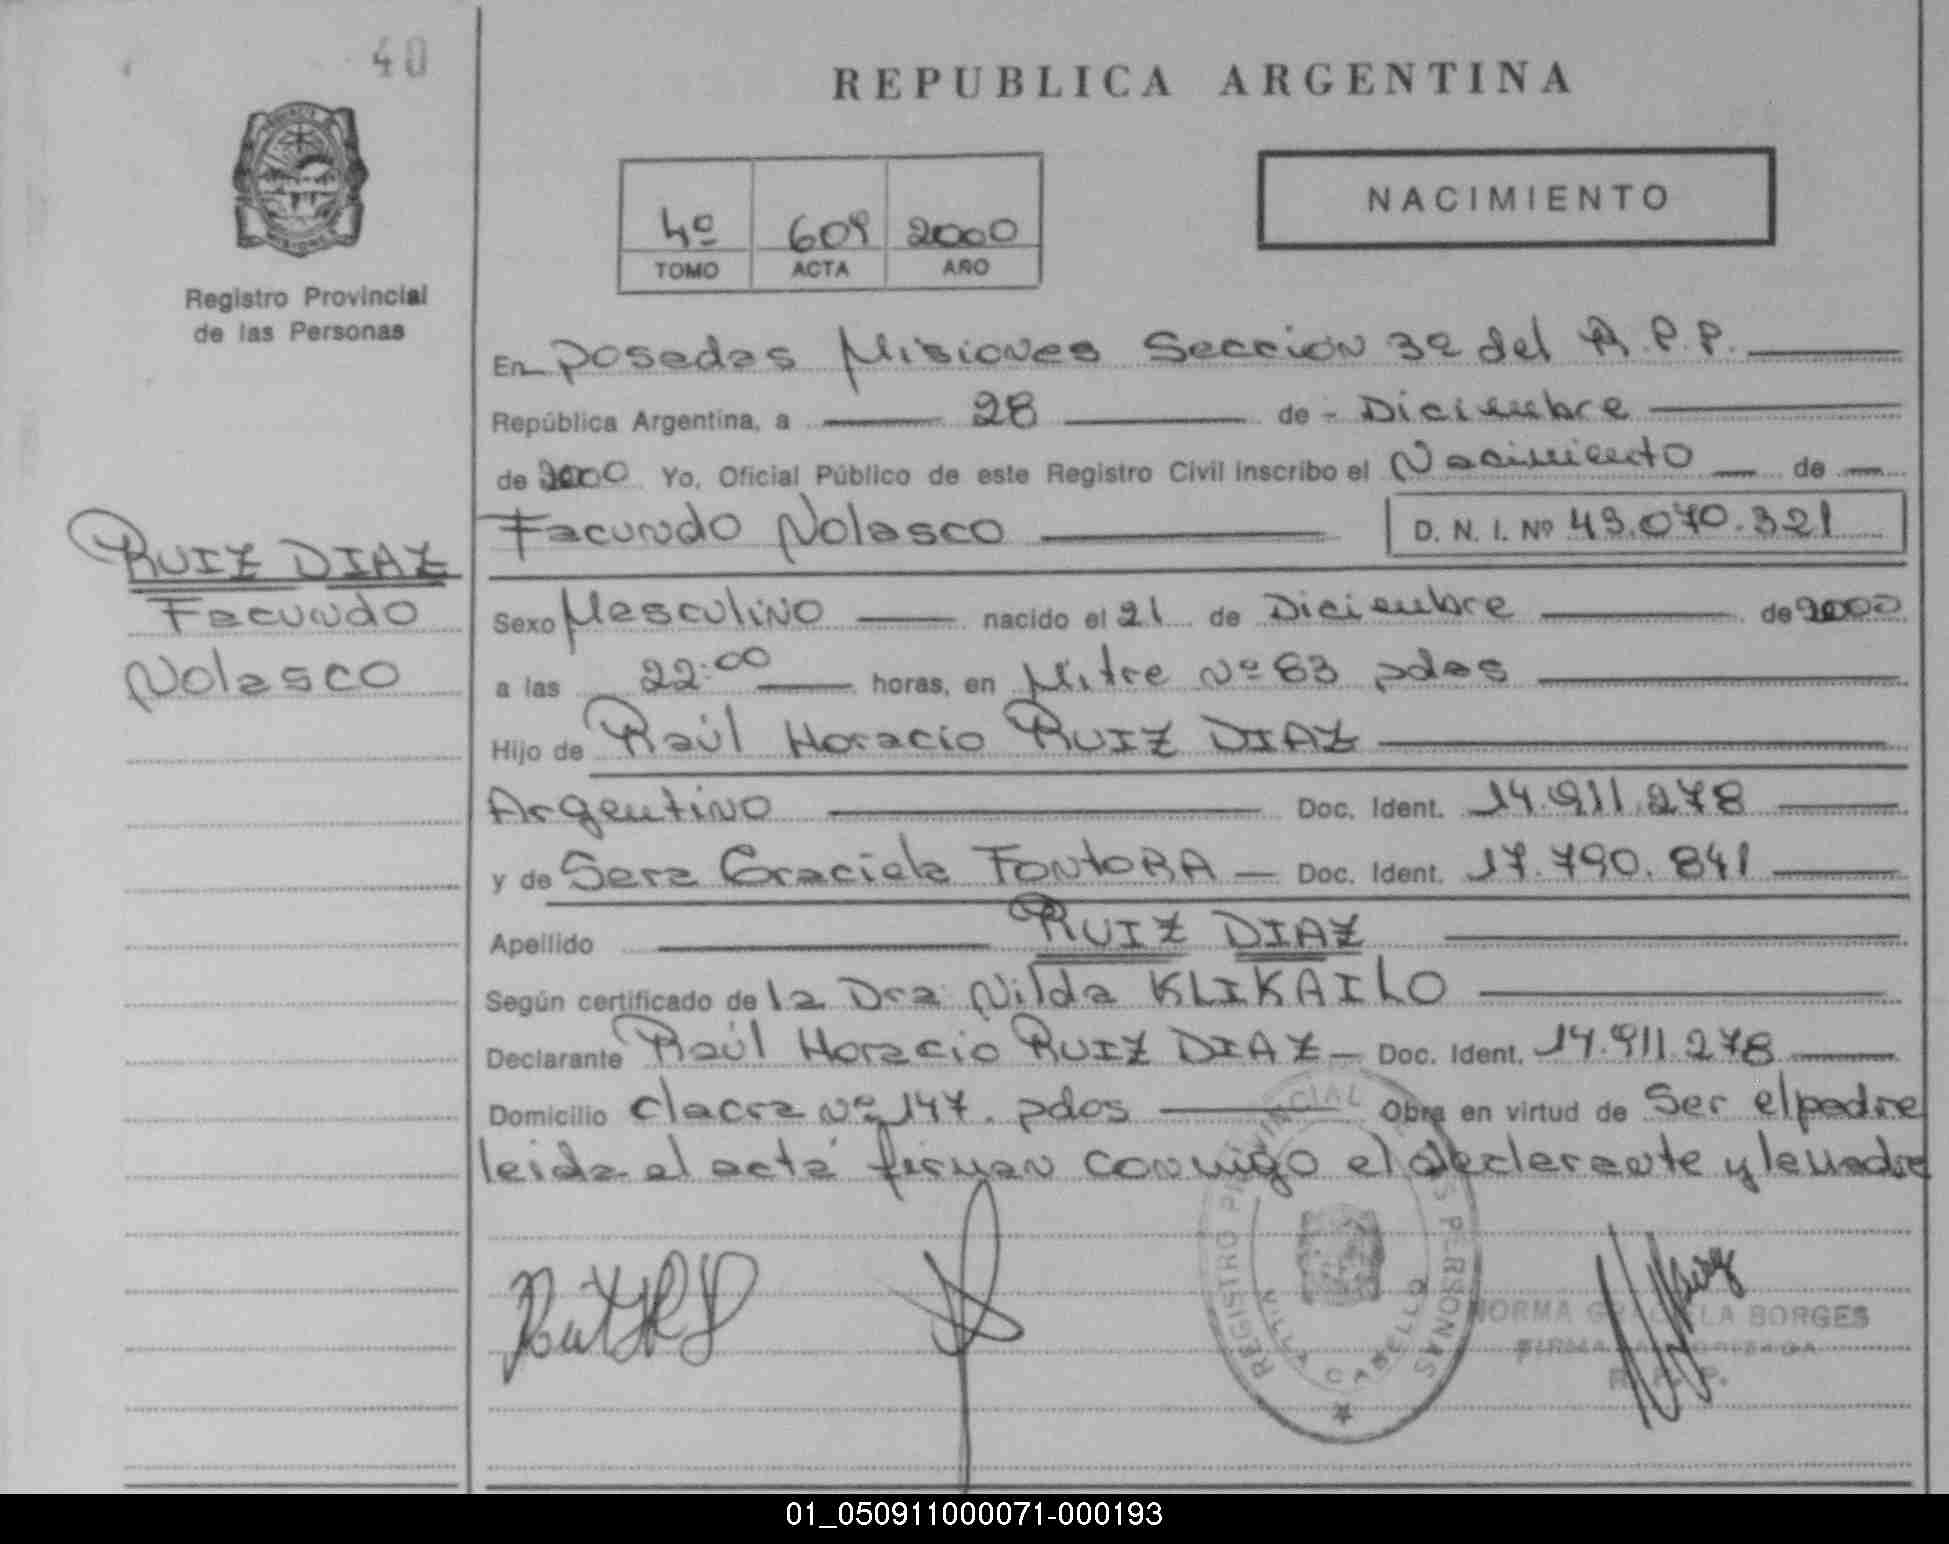 40
REPUBLICA ARGENTINA
NACIMIENTO
4º 609 2000
TOMO ACTA AÑO
Registro Provincial
de las Personas
En Posadas Misiones Sección 3ª del R.P.P.
República Argentina, a 28 de Diciembre
de 2000 Yo, Oficial Público de este Registro Civil inscribo el Nacimiento de
Facundo Nolasco D. N. I. Nº 43.070.321
RUIZ DIAZ
Facundo
Nolasco
Sexo Masculino nacido el 21 de Diciembre de 2000
a las 22:00 horas, en Mitre Nº 83 pdas
Hijo de Raúl Horacio RUIZ DIAZ
Argentino Doc. Ident. 14.911.278
y de Sara Graciela FONTORA Doc. Ident. 17.790.841
Apellido RUIZ DIAZ
Según certificado de la Dra Nilda KLIKAILO
Declarante Raúl Horacio RUIZ DIAZ Doc. Ident. 14.911.278
Domicilio chacra Nº 147. pdas Obra en virtud de Ser el padre
leida el acta firman conmigo el declarante y la madre
REGISTRO PROVINCIAL PERSONAS
VILLA CABELLO
NORMA GRACIELA BORGES
FIRMA AUTORIZADA
R. P. P.
01_050911000071-000193